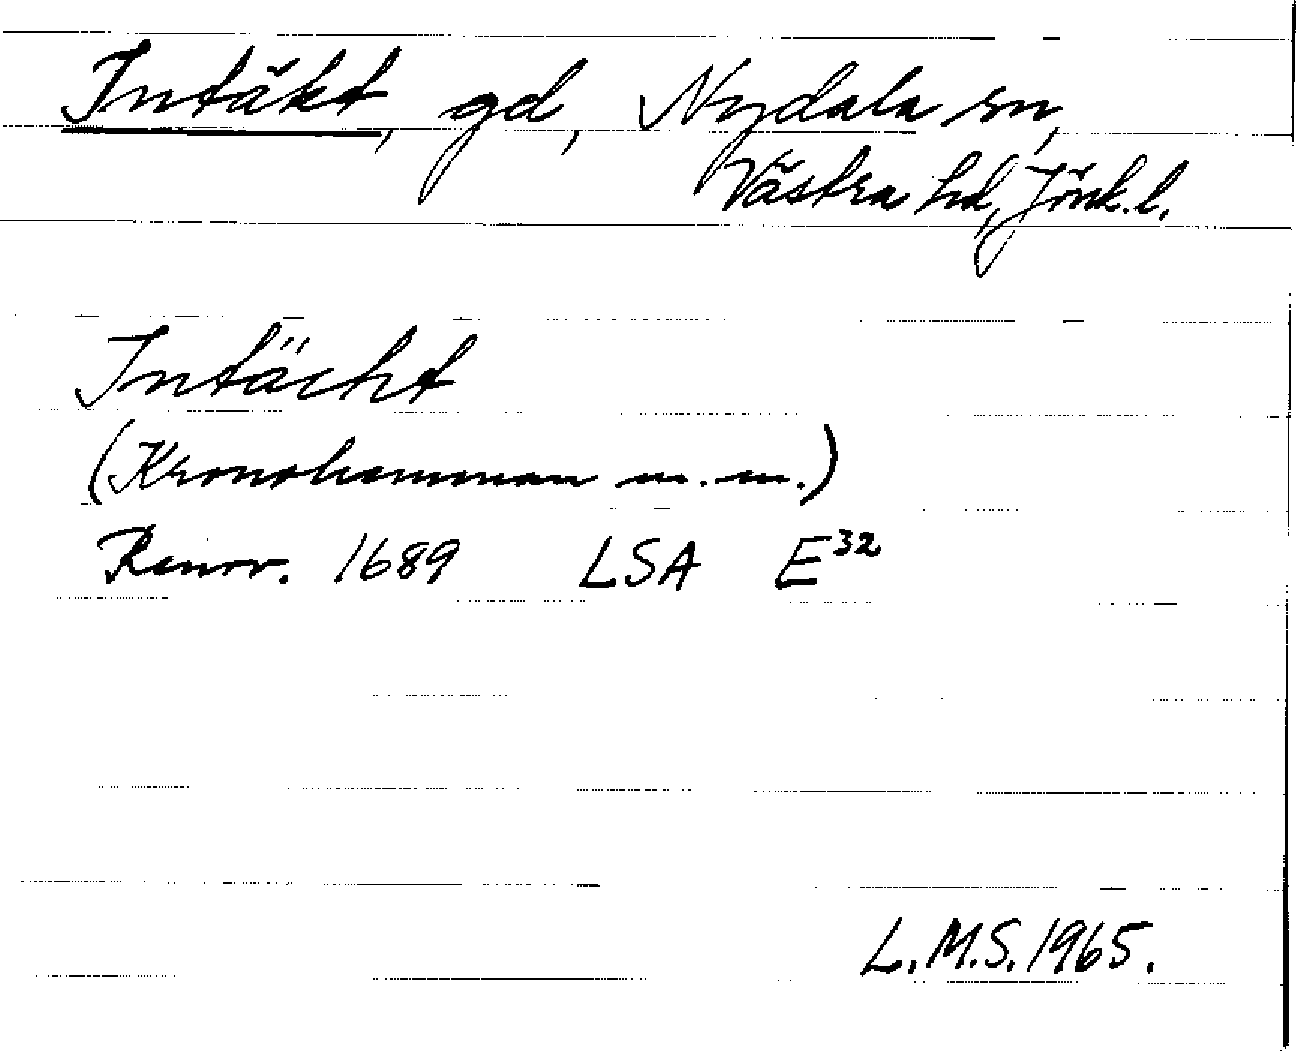 Intäkt, gd, Nydala sn,
Västra hd, Jönk.l.
Intächt
(Kronohemman m.m.)
Renov. 1689 LSA E³²
L.M.S. 1965.